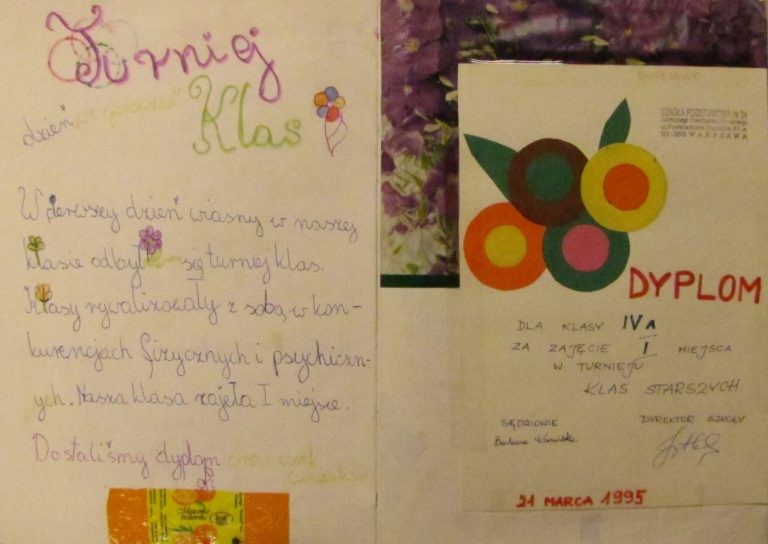 Turniej
Klas
dzień
W pierwszy dzień wiosny w naszej
klasie odbył się turniej klas.
Klasy rywalizowały z sobą, w kon-
kurencjach fizycznych i psychiczn-
ych. Nasza klasa zajęła I miejsce.
Dostaliśmy dyplom
SZKOŁA PODSTAWOWA Nr 24
01-080 WARSZAWA
DYPLOM
DLA KLASY IVA
ZA ZAJĘCIE I MIEJSCA
W TURNIEJU
KLAS STARSZYCH
SĘDZIOWIE
Barbara
DYREKTOR SZKOŁY
21 MARCA 1995